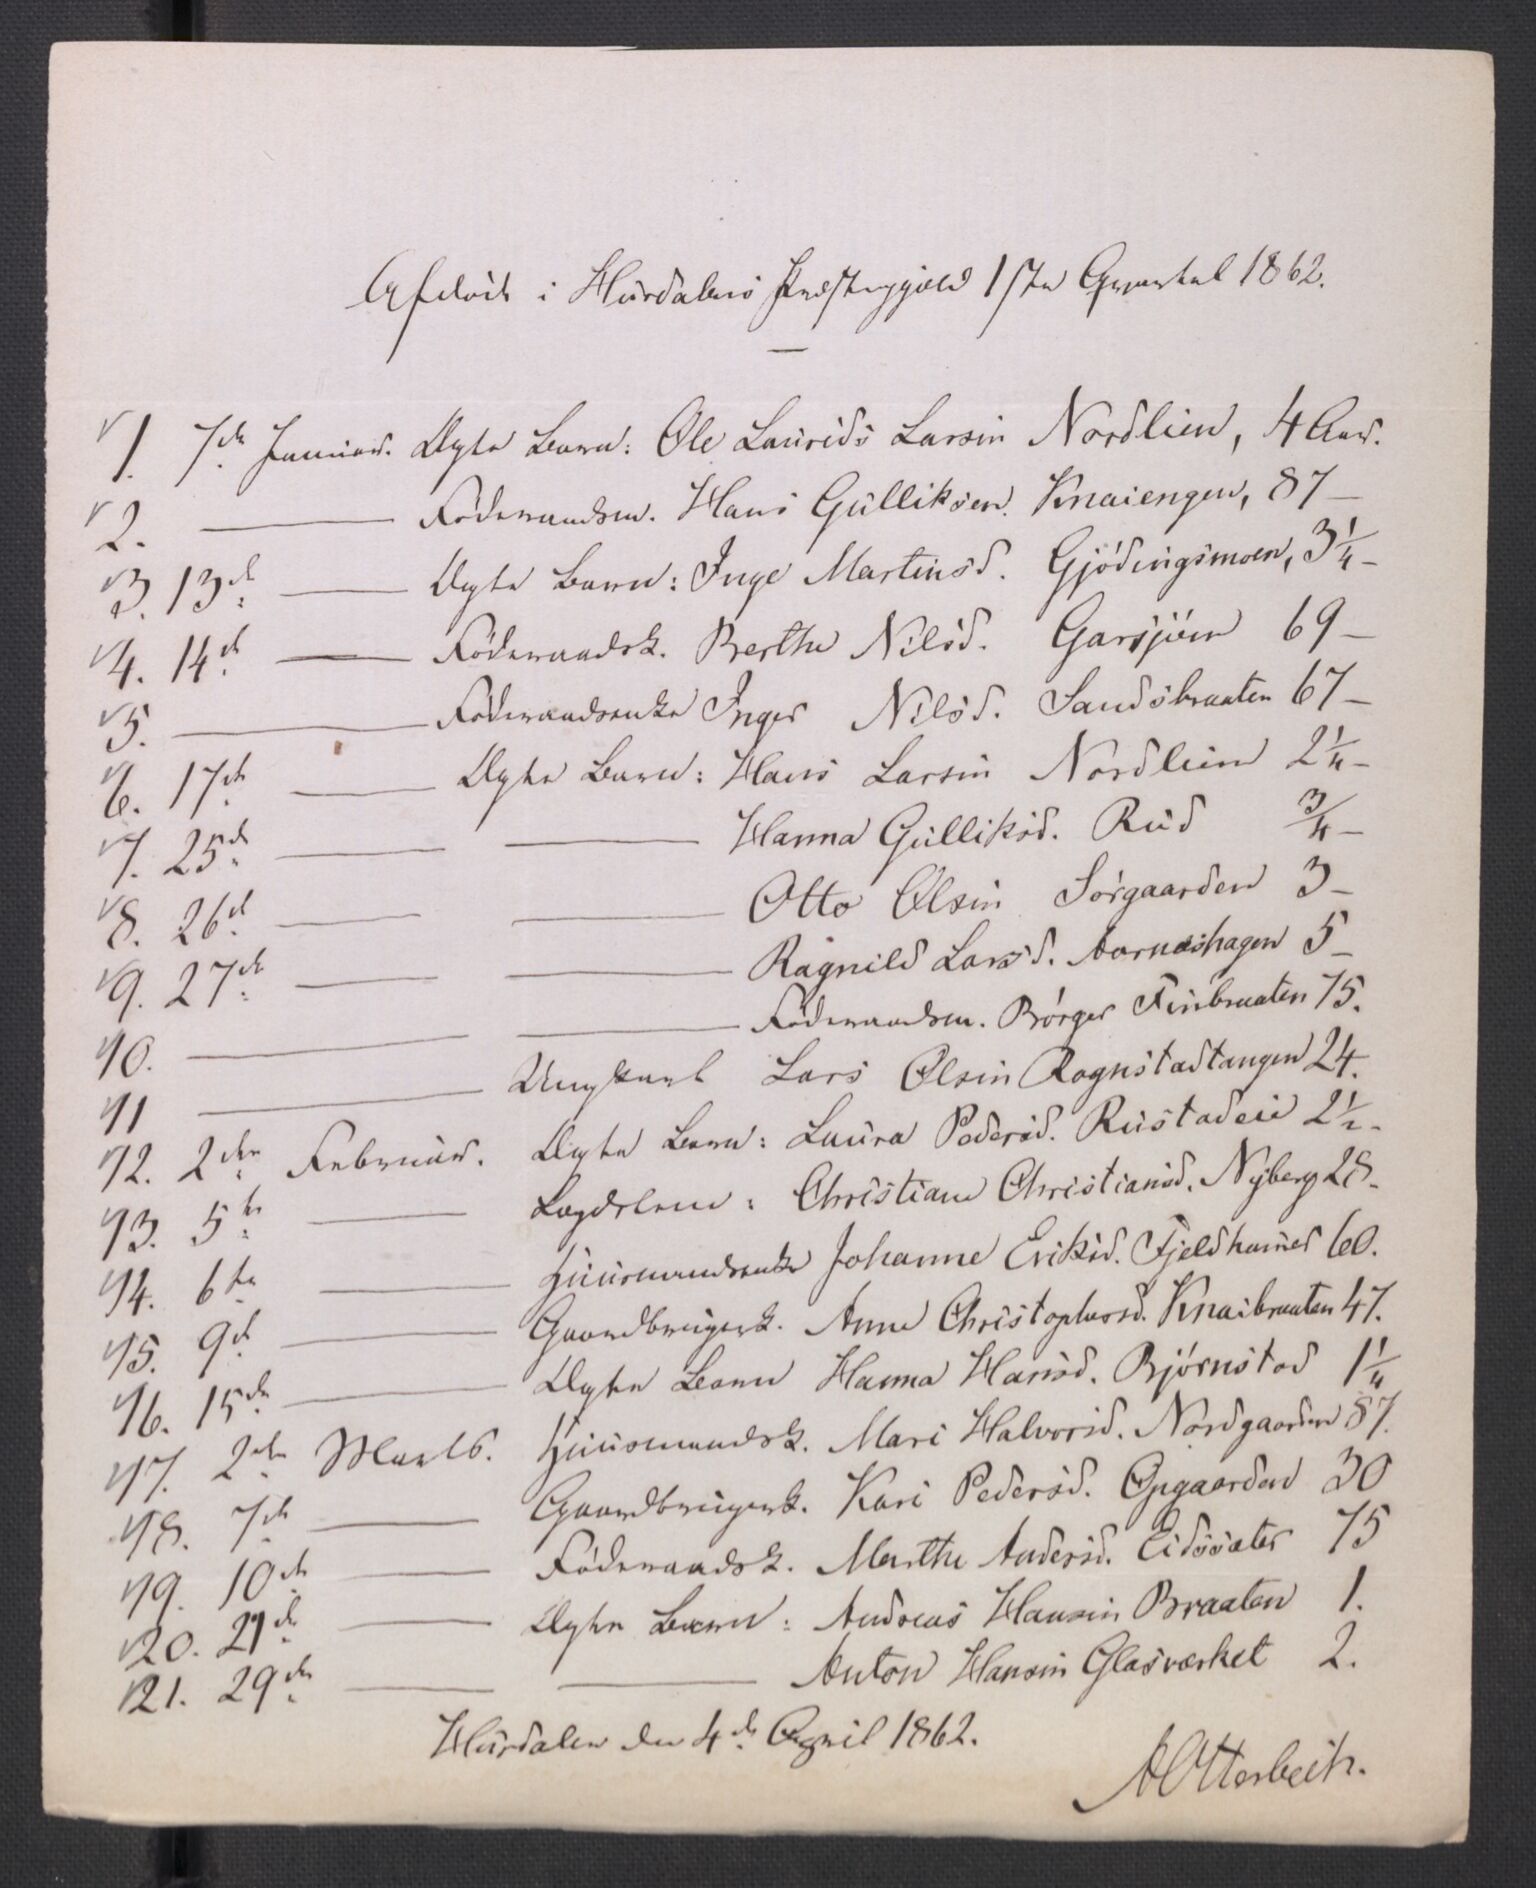 Afdøde i Hurdalens Præstegjæld 1ste Qvartal 1862.
1. 7de Januar. Ægte Barn: Ole Laurids Larsen Nordlien, 4 Aar.
2. — Føderaadsm. Hans Gulliksen Knaiengen, 87 —
3. 13de — Ægte Barn: Inge Martinsd. Gjødingsmoen, 3 1/4 —
4. 14de — Føderaadsk. Berthe Nilsd. Garsjøen 69 —
5. — Føderaadsenke Inger Nilsd. Sandsbraaten 67 —
6. 17de — Ægte Barn: Hans Larsen Nordlien 2 1/4 —
7. 25de — — Hanna Gulliksd. Rud 3/4 —
8. 26de — — Otto Olsen Sørgaarden 3 —
9. 27de — — Ragnild Larsd. Aarnæshagen 5 —
10. — — Føderaadsm. Børger Finbraaten 75.
11 — Ungkarl Lars Olsen Rognstadtangen 24.
12. 2den Februar. Ægte Barn: Laura Pedersd. Rustadeie 2 1/2 —
13. 5te — Lægdslem: Christiane Christiansd. Nyberg 28 —
14. 6te — Huusmandsenke Johanne Eriksd. Fjeldhamer 60.
15. 9de — Gaardbrugerk. Anne Christophersd. Knaibraaten 47.
16. 15de — Ægte Barn Hanna Hansd. Bjørnstad 1 1/4
17. 2den Marts. Huusmandsk. Mari Halvorsd. Nordgaarden 87.
18. 7de — Gaardbrugerk. Kari Pedersd. Opgaarden 30
19. 10de — Føderaadsk. Marthe Andersd. Eidssæter 75
20. 21de — Ægte Barn: Andreas Hansen Braaten 1.
21. 29de — — Anton Hansen Glasværket 2.
Hurdalen den 4de April 1862.
A Otterbech.